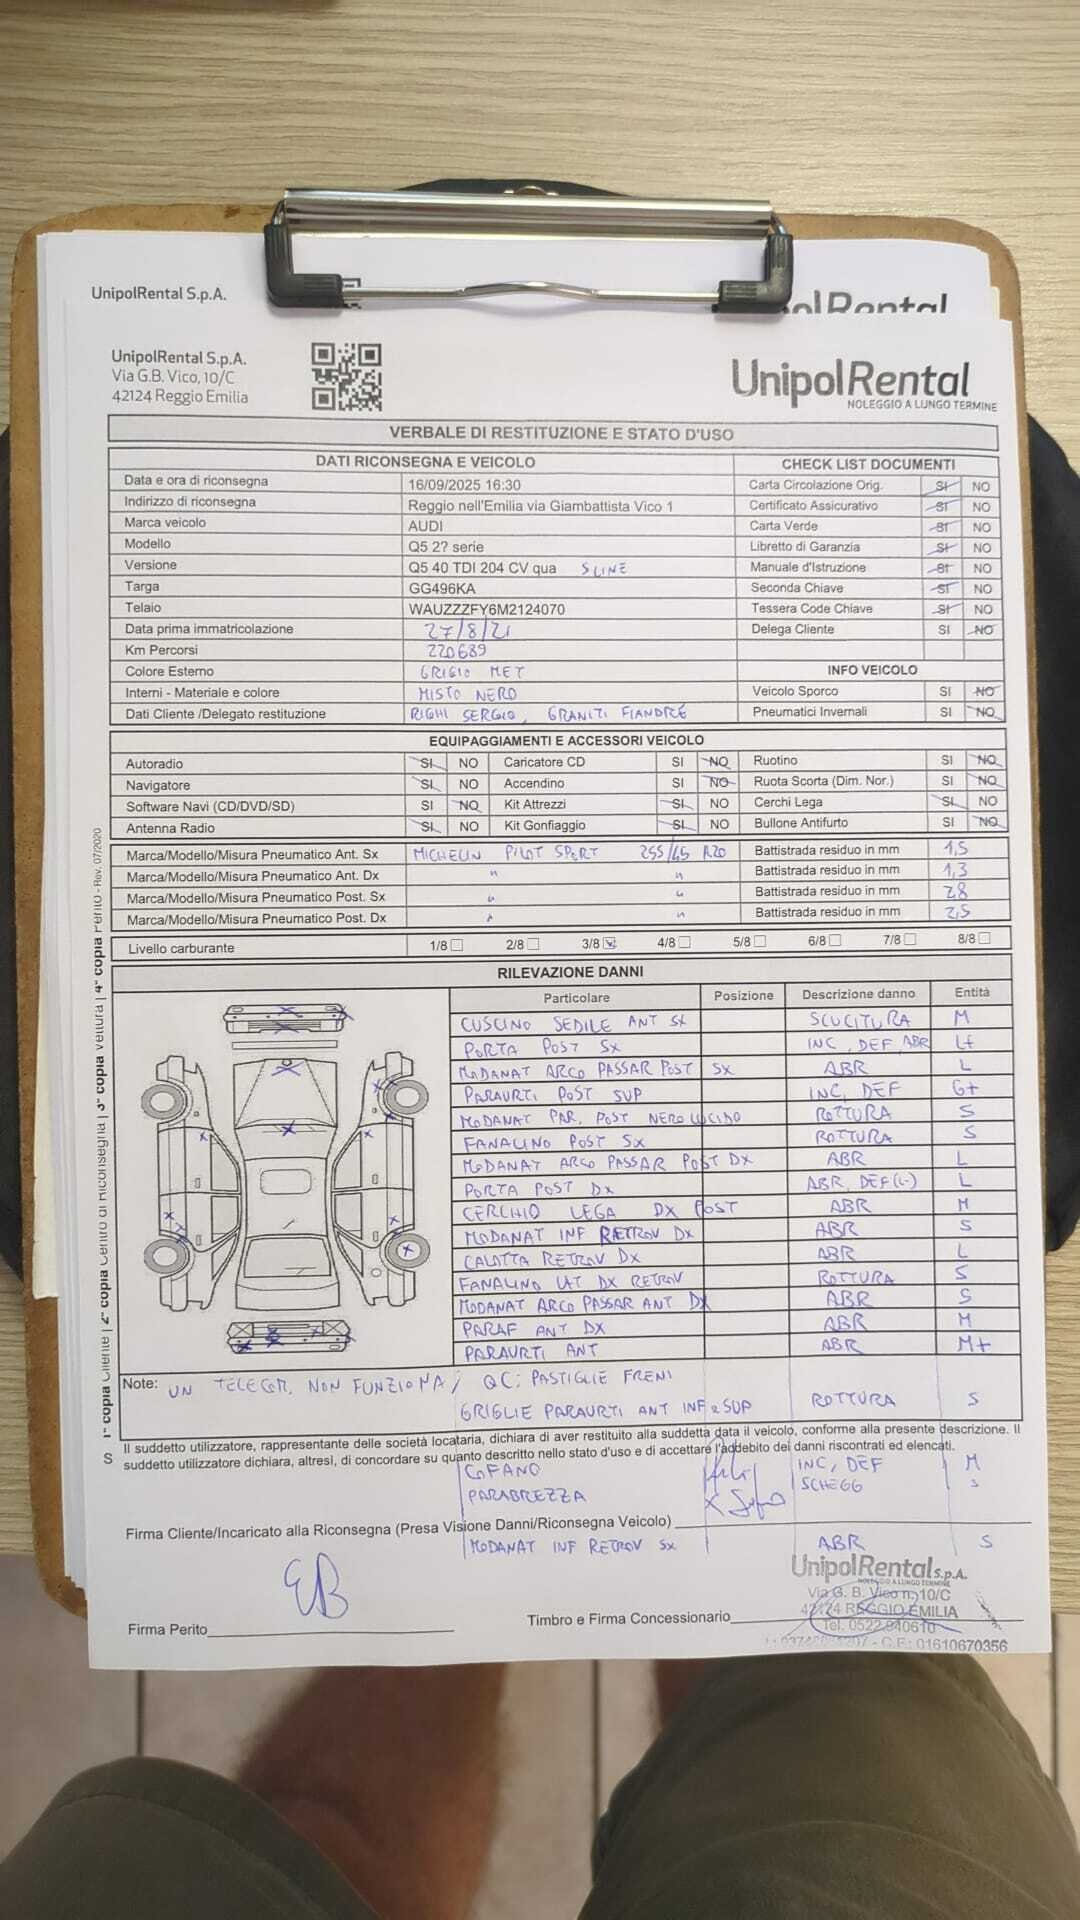 UnipolRental S.p.A.
UnipolRental
UnipolRental S.p.A.
Via G.B. Vico, 10/C
42124 Reggio Emilia
UnipolRental
NOLEGGIO A LUNGO TERMINE
VERBALE DI RESTITUZIONE E STATO D'USO
DATI RICONSEGNA E VEICOLO
Data e ora di riconsegna 16/09/2025 16:30
Indirizzo di riconsegna Reggio nell'Emilia via Giambattista Vico 1
Marca veicolo AUDI
Modello Q5 2? serie
Versione Q5 40 TDI 204 CV qua SLINE
Targa GG496KA
Telaio WAUZZZFY6M2124070
Data prima immatricolazione 27/8/21
Km Percorsi 220689
Colore Esterno GRIGIO MET
Interni - Materiale e colore MISTO NERO
Dati Cliente /Delegato restituzione RIGHI SERGIO, GRANITI FIANDRE
CHECK LIST DOCUMENTI
Carta Circolazione Orig. SI NO
Certificato Assicurativo SI NO
Carta Verde SI NO
Libretto di Garanzia SI NO
Manuale d'Istruzione SI NO
Seconda Chiave SI NO
Tessera Code Chiave SI NO
Delega Cliente SI NO
INFO VEICOLO
Veicolo Sporco SI NO
Pneumatici Invernali SI NO
EQUIPAGGIAMENTI E ACCESSORI VEICOLO
Autoradio SI NO Caricatore CD SI NO Ruotino SI NO
Navigatore SI NO Accendino SI NO Ruota Scorta (Dim. Nor.) SI NO
Software Navi (CD/DVD/SD) SI NO Kit Attrezzi SI NO Cerchi Lega SI NO
Antenna Radio SI NO Kit Gonfiaggio SI NO Bullone Antifurto SI NO
Marca/Modello/Misura Pneumatico Ant. Sx MICHELIN PILOT SPORT 255/45 R20 Battistrada residuo in mm 1,5
Marca/Modello/Misura Pneumatico Ant. Dx " " Battistrada residuo in mm 1,3
Marca/Modello/Misura Pneumatico Post. Sx " " Battistrada residuo in mm 2,8
Marca/Modello/Misura Pneumatico Post. Dx " " Battistrada residuo in mm 2,5
Livello carburante 1/8 2/8 3/8 4/8 5/8 6/8 7/8 8/8
RILEVAZIONE DANNI
Particolare Posizione Descrizione danno Entità
CUSCINO SEDILE ANT SX SCUCITURA M
PORTA POST SX INC, DEF, ABR L+
MODANAT ARCO PASSAR POST SX ABR L
PARAURTI POST SUP INC, DEF G+
MODANAT PAR. POST NERO LUCIDO ROTTURA S
FANALINO POST SX ROTTURA S
MODANAT ARCO PASSAR POST DX ABR L
PORTA POST DX ABR, DEF(L-) L
CERCHIO LEGA DX POST ABR M
MODANAT INF RETROV DX ABR S
CALOTTA RETROV DX ABR L
FANALINO LAT DX RETROV ROTTURA S
MODANAT ARCO PASSAR ANT DX ABR S
PARAF ANT DX ABR M
PARAURTI ANT ABR M+
Note: UN TELECOR. NON FUNZIONA; QC: PASTIGLIE FRENI
GRIGLIE PARAURTI ANT INF e SUP ROTTURA S
Il suddetto utilizzatore, rappresentante delle società locataria, dichiara di aver restituito alla suddetta data il veicolo, conforme alla presente descrizione. Il
S suddetto utilizzatore dichiara, altresì, di concordare su quanto descritto nello stato d'uso e di accettare l'addebito dei danni riscontrati ed elencati.
COFANO INC, DEF M
PARABREZZA SCHEGG S
Firma Cliente/Incaricato alla Riconsegna (Presa Visione Danni/Riconsegna Veicolo)
MODANAT INF RETROV SX ABR S
UnipolRental S.p.A.
NOLEGGIO A LUNGO TERMINE
Via G. B. Vico n. 10/C
42124 REGGIO EMILIA
Tel. 0522.940610
C.F.: 01610670356
Timbro e Firma Concessionario
Firma Perito
EB
1° copia Cliente | 2° copia Centro di Riconsegna | 3° copia Vettura | 4° copia Perito - Rev. 07/2020